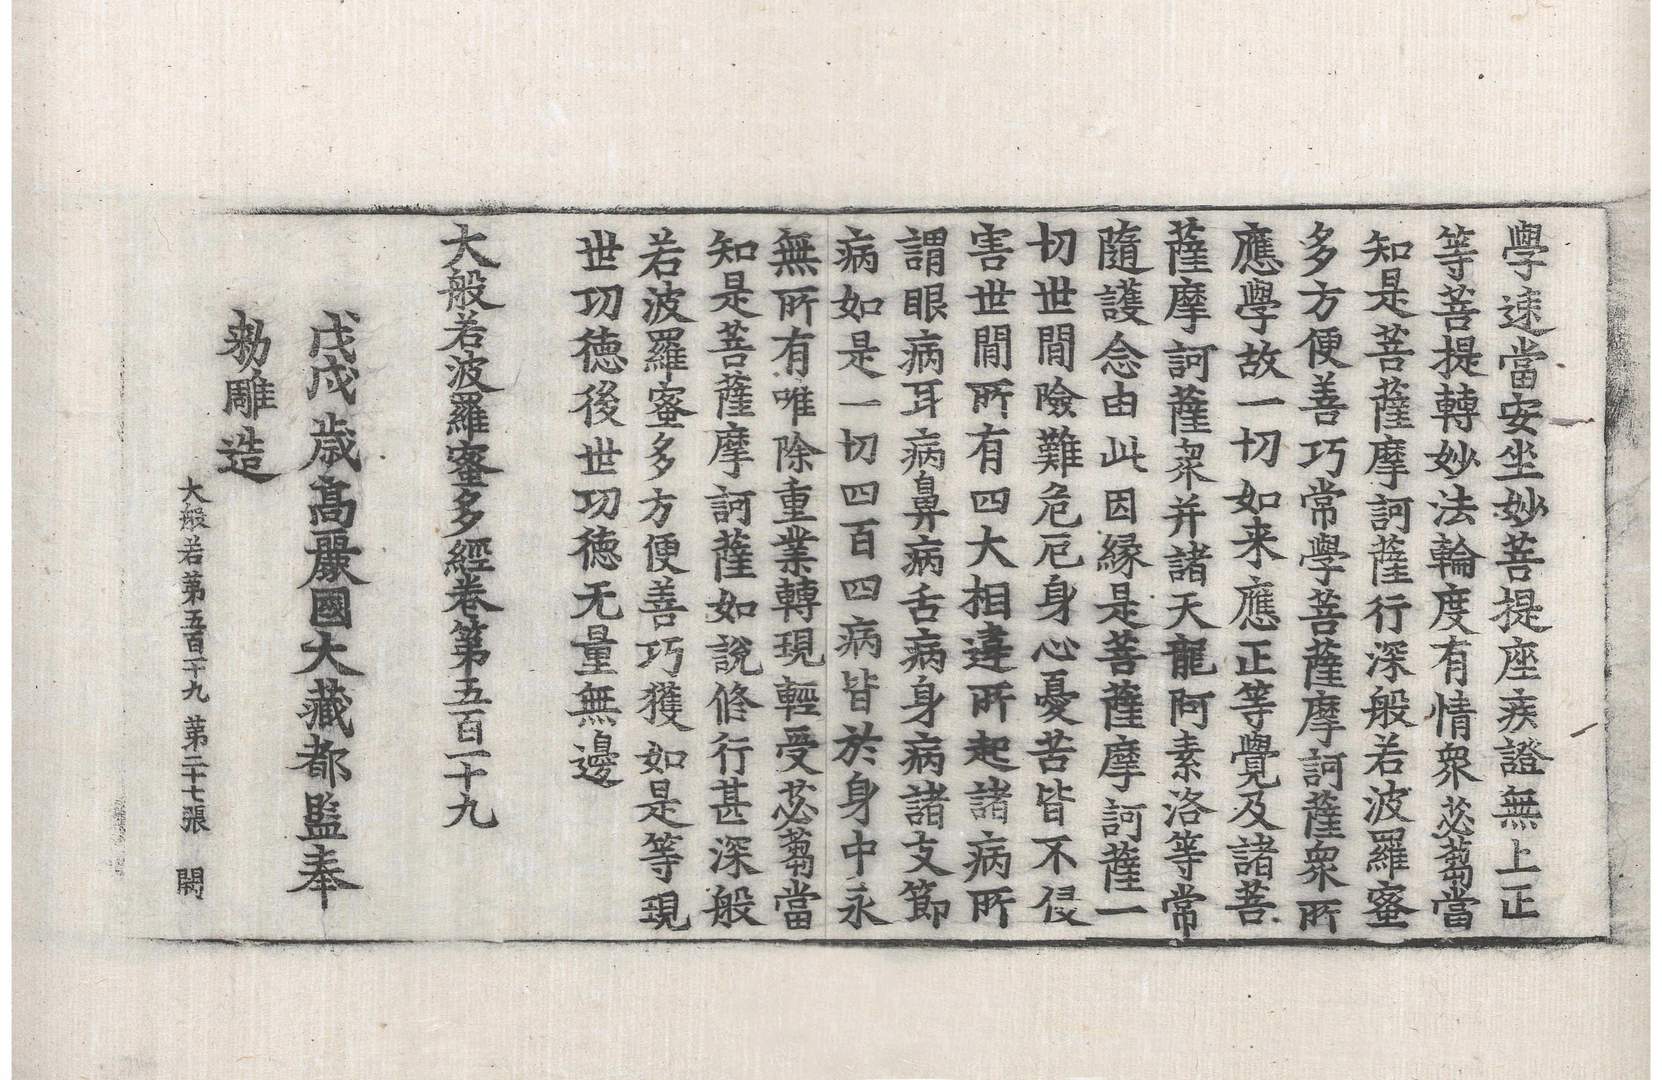 學速當安坐妙菩提座疾證無上正
等菩提轉妙法輪度有情衆苾蒭當
知是菩薩摩訶薩行深般若波羅蜜
多方便善巧常學菩薩摩訶薩衆所
應學故一切如来應正等覺及諸菩
薩摩訶薩衆并諸天龍阿素洛等常
隨護念由此因縁是菩薩摩訶薩一
切世閒險難危厄身心憂苦皆不侵
害世閒所有四大相違所起諸病所
謂眼病耳病鼻病舌病身病諸支節
病如是一切四百四病皆於身中永
無所有唯除重業轉現輕受苾蒭當
知是菩薩摩訶薩如說修行甚深般
若波羅蜜多方便善巧獲如是等現
世功徳後世功徳无量無邊
大般若波羅蜜多經卷第五百一十九
戊戌歳高麗國大藏都監奉
勑雕造
大般若第五百一十九 第二十七張 闕